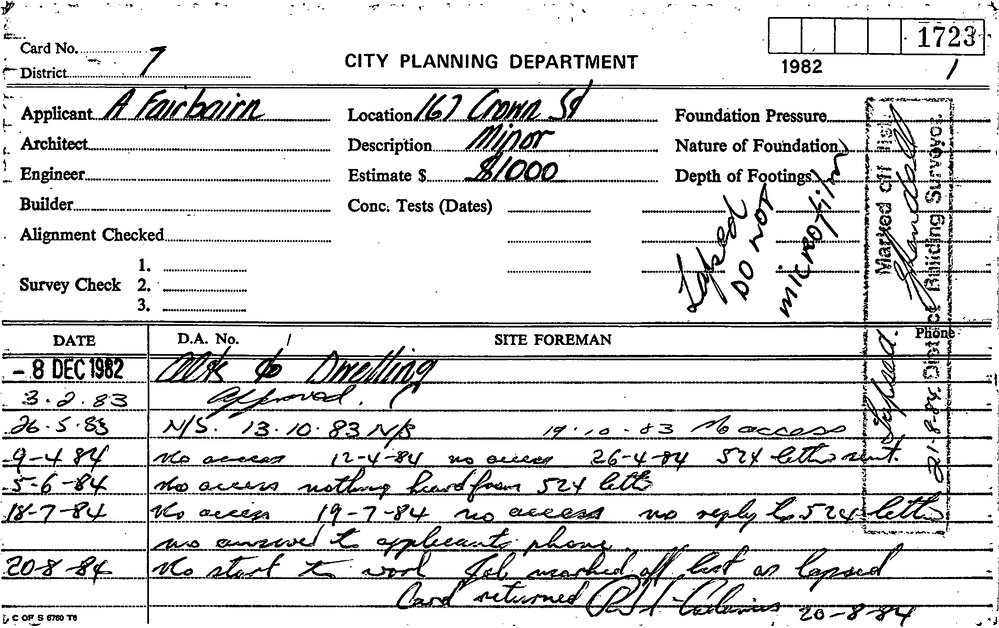 Card No.
District 7
CITY PLANNING DEPARTMENT
1723
1982 1
Applicant A Fairbairn
Location 167 Crown St
Foundation Pressure
Architect
Description Minor
Nature of Foundation
Engineer
Estimate $ $1000
Depth of Footings
Builder
Conc. Tests (Dates)
Alignment Checked
Survey Check 1.
2.
3.
Lapsed
DO NOT
microfilm
Marked off list.
Lapsed.
21-8-84. District Building Surveyor.
DATE D.A. No. / SITE FOREMAN Phone
- 8 DEC 1982 Alts to Dwelling
3.2.83 Approved.
26.5.83 N/S. 13.10.83 N/S 19.10.83 No access
9-4-84 No access 12-4-84 no access 26-4-84 524 letter sent.
5-6-84 No access nothing heard from 524 letter
18-7-84 No access 19-7-84 no access no reply to 524 letter
no answer to applicants phone.
20-8-84 No start to work Job marked off list as lapsed
Card returned 20-8-84
C OF S 6760 T6